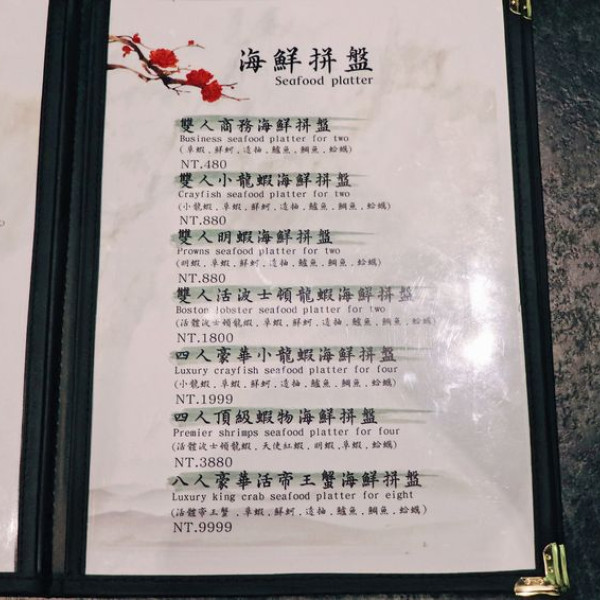 海鮮拼盤
Seafood platter
雙人商務海鮮拼盤
Business seafood platter for two
(草蝦.鮮蚵.透抽.鱸魚.鯛魚.蛤蠣)
NT.480
雙人小龍蝦海鮮拼盤
Crayfish seafood platter for two
(小龍蝦.草蝦.鮮蚵.透抽.鱸魚.鯛魚.蛤蠣)
NT.880
雙人明蝦海鮮拼盤
Prowns seafood platter for two
(明蝦.草蝦.鮮蚵.透抽.鱸魚.鯛魚.蛤蠣)
NT.880
雙人活波士頓龍蝦海鮮拼盤
Boston lobster seafood platter for two
(活體波士頓龍蝦.草蝦.鮮蚵.透抽.鱸魚.鯛魚.蛤蠣)
NT.1800
四人豪華小龍蝦海鮮拼盤
Luxury crayfish seafood platter for four
(小龍蝦.草蝦.鮮蚵.透抽.鱸魚.鯛魚.蛤蠣)
NT.1999
四人頂級蝦物海鮮拼盤
Premier shrimps seafood platter for four
(活體波士頓龍蝦.天使紅蝦.明蝦.草蝦.蛤蠣)
NT.3880
八人豪華活帝王蟹海鮮拼盤
Luxury king crab seafood platter for eight
(活體帝王蟹.草蝦.鮮蚵.透抽.鱸魚.鯛魚.蛤蠣)
NT.9999